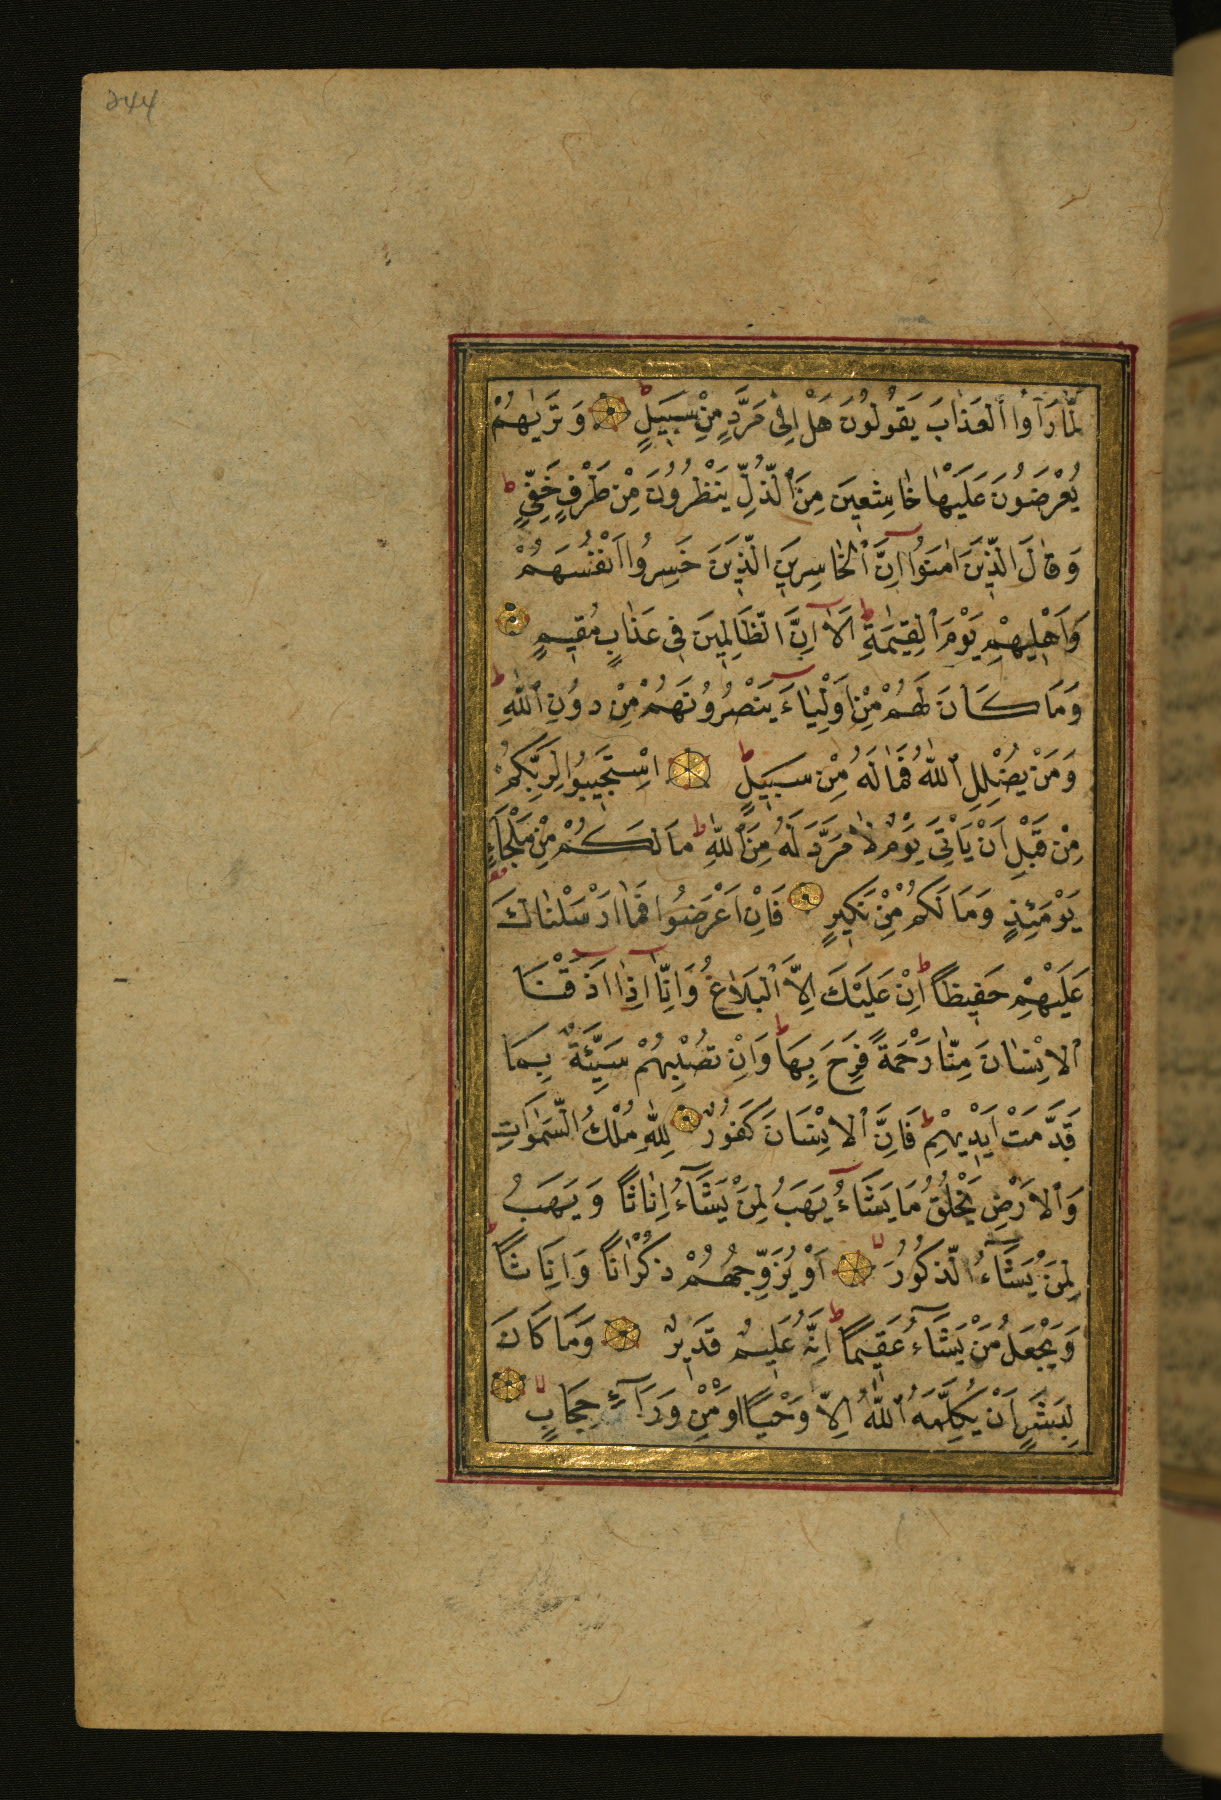 244
لَمَّا رَاَوُا ٱلْعَذَابَ يَقُولُونَ هَلْ اِلٰى مَرَدٍّ مِنْ سَبِيلٍ ط وَتَرٰيهُمْ
يُعْرَضُونَ عَلَيْهَا خَاشِعِينَ مِنَ ٱلذُّلِّ يَنْظُرُونَ مِنْ طَرْفٍ خَفِيٍّ ط
وَقَالَ الَّذِينَ اٰمَنُٓوا اِنَّ ٱلْخَاسِرِينَ الَّذِينَ خَسِرُوا اَنْفُسَهُمْ
وَاَهْلِيهِمْ يَوْمَ ٱلْقِيٰمَةِ ط اَلَٓا اِنَّ الظَّالِمِينَ فِى عَذَابٍ مُقِيمٍ
وَمَا كَانَ لَهُمْ مِنْ اَوْلِيَٓاءَ يَنْصُرُونَهُمْ مِنْ دُونِ ٱللّٰهِ ط
وَمَنْ يُضْلِلِ ٱللّٰهُ فَمَا لَهُ مِنْ سَبِيلٍ ط اِسْتَجِيبُوا لِرَبِّكُمْ
مِنْ قَبْلِ اَنْ يَاْتِىَ يَوْمٌ لَا مَرَدَّ لَهُ مِنَ ٱللّٰهِ ط مَا لَكُمْ مِنْ مَلْجَاءٍ
يَوْمَئِذٍ وَمَا لَكُمْ مِنْ نَكِيرٍ فَاِنْ اَعْرَضُوا فَمَٓا اَرْسَلْنَاكَ
عَلَيْهِمْ حَفِيظًا ط اِنْ عَلَيْكَ اِلَّا ٱلْبَلَاغُ وَاِنَّٓا اِذَٓا اَذَقْنَا
ٱلْاِنْسَانَ مِنَّا رَحْمَةً فَرِحَ بِهَا ط وَاِنْ تُصِبْهُمْ سَيِّئَةٌ بِمَا
قَدَّمَتْ اَيْدِيهِمْ ط فَاِنَّ ٱلْاِنْسَانَ كَفُورٌ لِلّٰهِ مُلْكُ السَّمٰوَاتِ
وَٱلْاَرْضِ يَخْلُقُ مَا يَشَٓاءُ يَهَبُ لِمَنْ يَشَٓاءُ اِنَاثًا وَيَهَبُ
لِمَنْ يَشَٓاءُ الذُّكُورَ لا اَوْ يُزَوِّجُهُمْ ذُكْرَانًا وَاِنَاثًا ط
وَيَجْعَلُ مَنْ يَشَٓاءُ عَقِيمًا ط اِنَّهُ عَلِيمٌ قَدِيرٌ وَمَا كَانَ
لِبَشَرٍ اَنْ يُكَلِّمَهُ ٱللّٰهُ اِلَّا وَحْيًا اَوْ مِنْ وَرَٓائِ حِجَابٍ لا